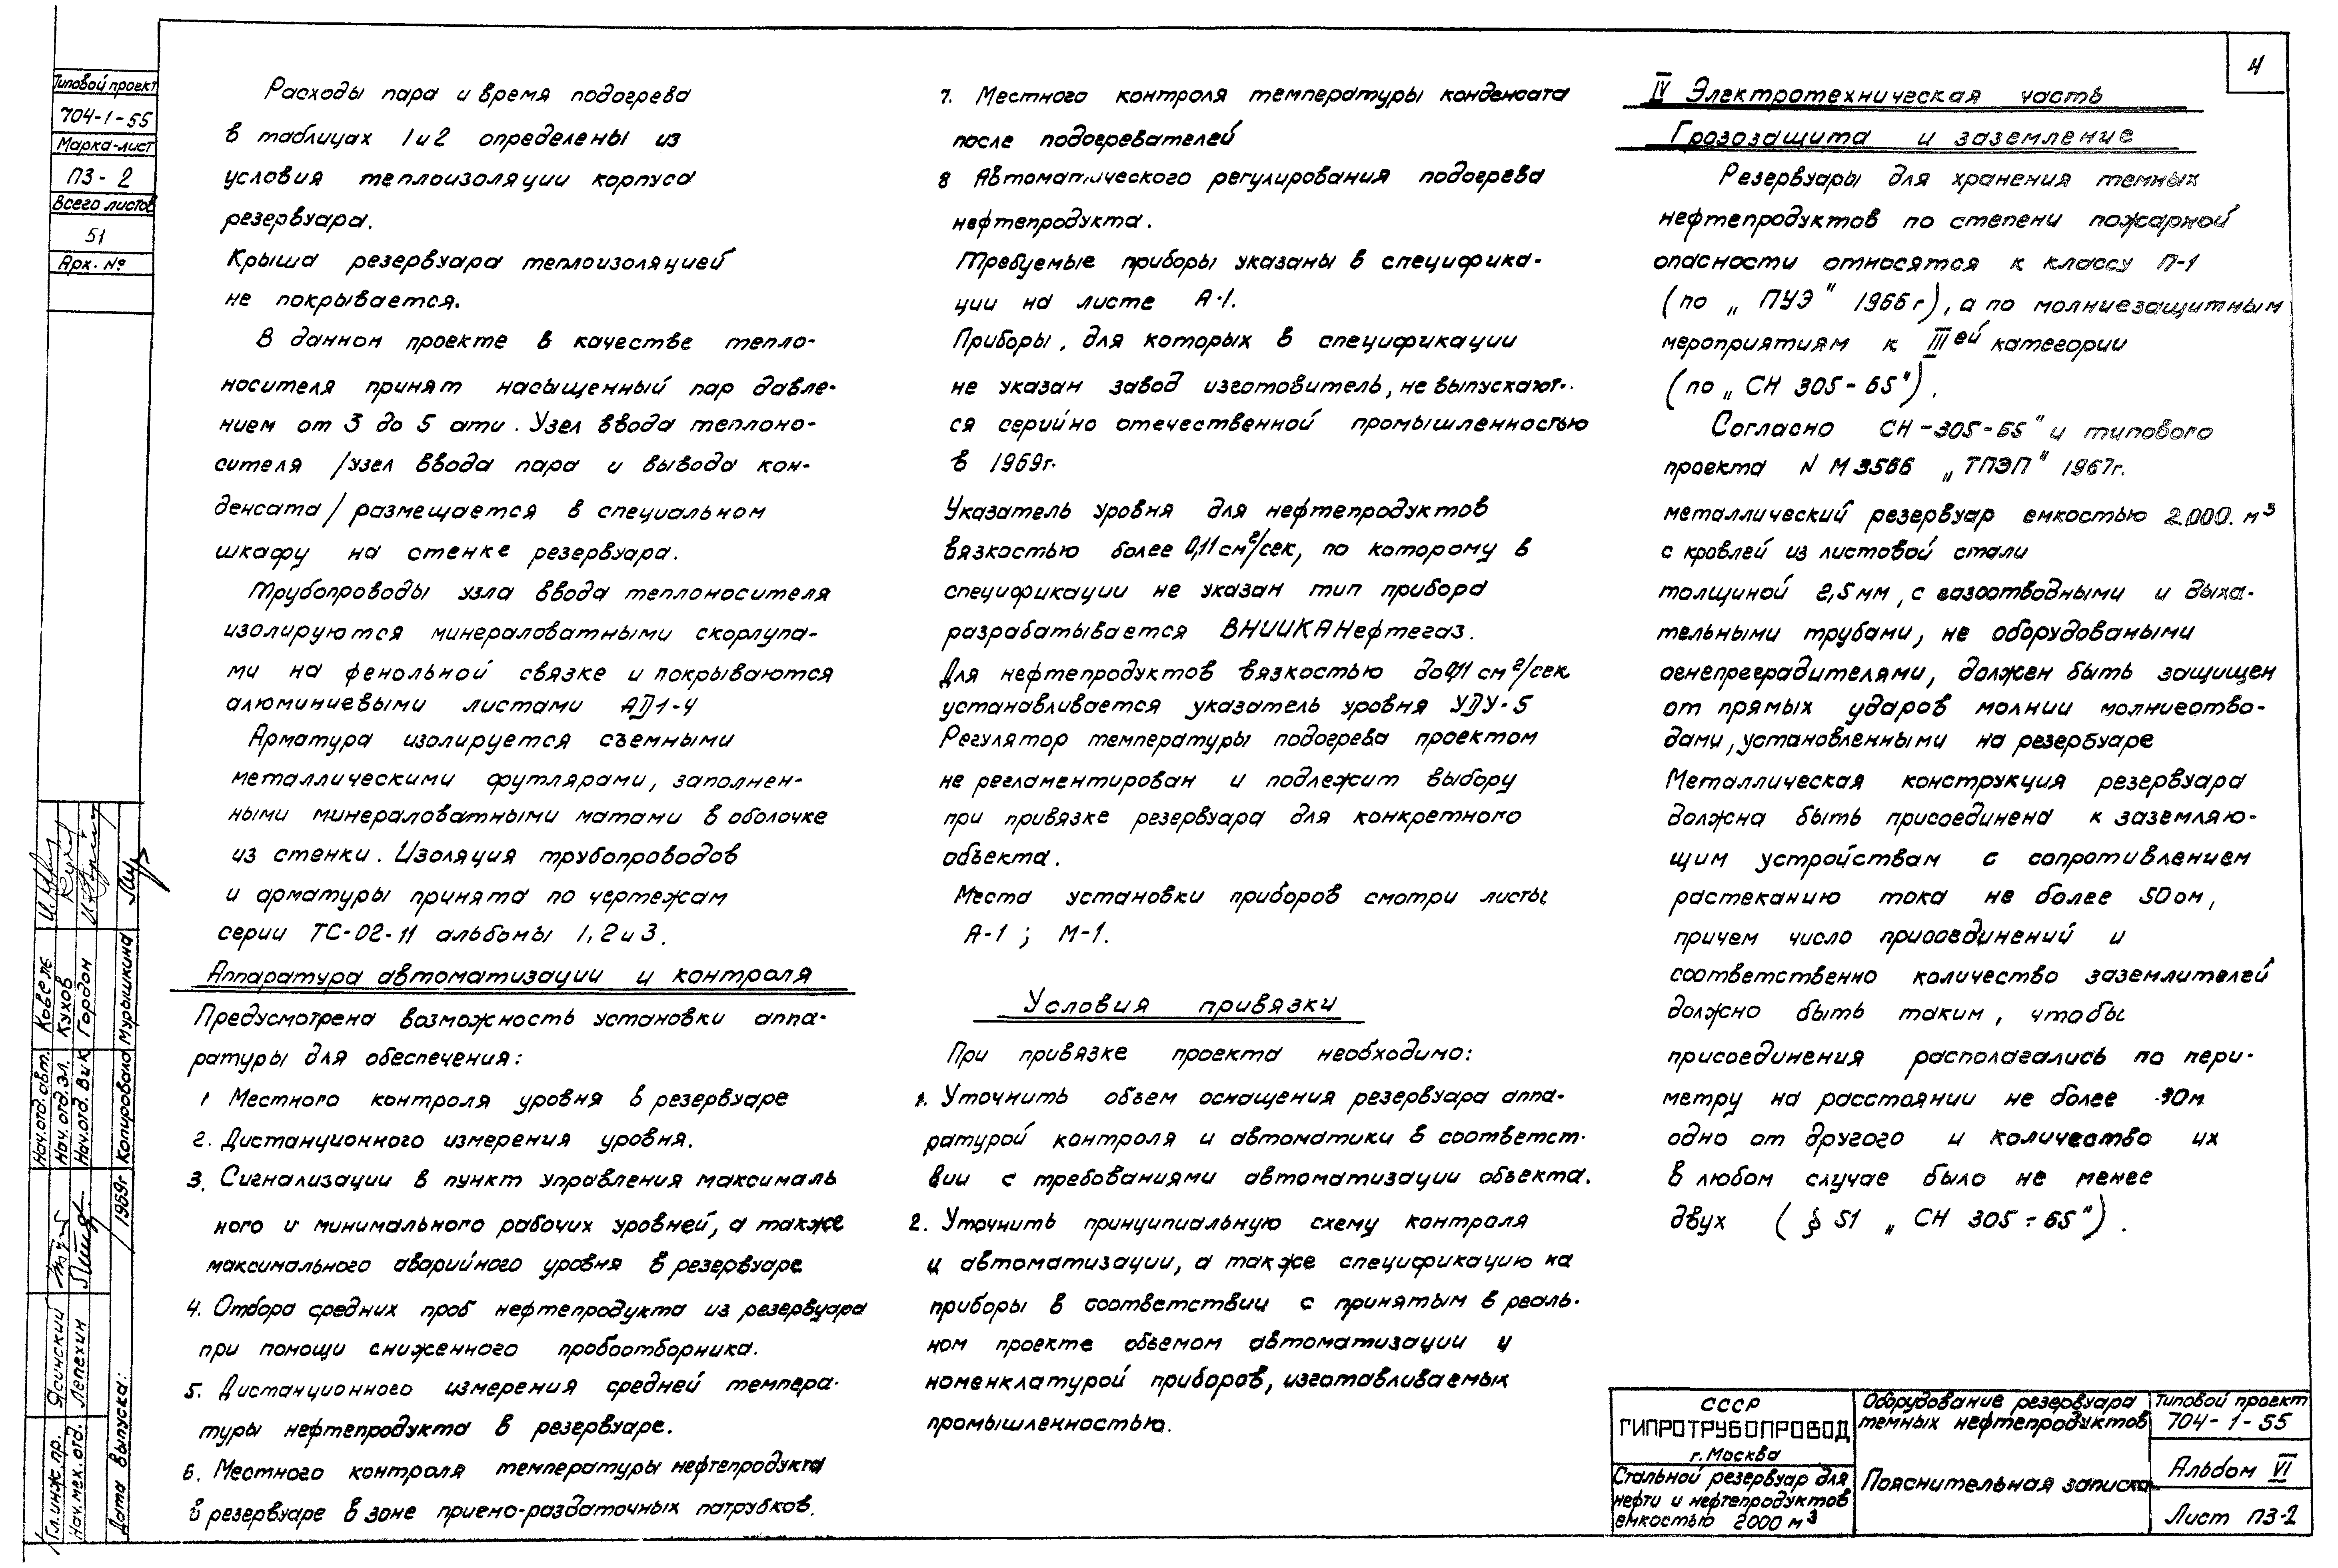 4
Типовой проект
704-1-55
Марка-лист
ПЗ-2
Всего листов
51
Арх. №
Расходы пара и время подогрева
в таблицах 1 и 2 определены из
условия теплоизоляции корпуса
резервуара.
Крыша резервуара теплоизоляцией
не покрывается.
В данном проекте в качестве тепло-
носителя принят насыщенный пар давле-
нием от 3 до 5 ати. Узел ввода теплоно-
сителя /узел ввода пара и вывода кон-
денсата/ размещается в специальном
шкафу на стенке резервуара.
Трубопроводы узла ввода теплоносителя
изолируются минераловатными скорлупа-
ми на фенольной связке и покрываются
алюминиевыми листами АД1-4
Арматура изолируется съемными
металлическими футлярами, заполнен-
ными минераловатными матами в оболочке
из стенки. Изоляция трубопроводов
и арматуры принята по чертежам
серии ТС-02-11 альбомы 1, 2 и 3.
Аппаратура автоматизации и контроля
Предусмотрена возможность установки аппа-
ратуры для обеспечения:
1 Местного контроля уровня в резервуаре
2. Дистанционного измерения уровня.
3. Сигнализации в пункт управления максималь
ного и минимального рабочих уровней, а также
максимального аварийного уровня в резервуаре
4. Отбора средних проб нефтепродукта из резервуара
при помощи сниженного пробоотборника.
5. Дистанционного измерения средней темпера-
туры нефтепродукта в резервуаре.
6. Местного контроля температуры нефтепродукта
в резервуаре в зоне приемо-раздаточных патрубков.
7. Местного контроля температуры конденсата
после подогревателей
8 Автоматического регулирования подогрева
нефтепродукта.
Требуемые приборы указаны в специфика-
ции на листе А-1.
Приборы, для которых в спецификации
не указан завод изготовитель, не выпускают-
ся серийно отечественной промышленностью
в 1969г.
Указатель уровня для нефтепродуктов
вязкостью более 0,11 см²/сек, по которому в
спецификации не указан тип прибора
разрабатывается ВНИИКАНефтегаз.
Для нефтепродуктов вязкостью до 0,11 см²/сек
устанавливается указатель уровня УДУ-5
Регулятор температуры подогрева проектом
не регламентирован и подлежит выбору
при привязке резервуара для конкретного
объекта.
Места установки приборов смотри листы
А-1; М-1.
Условия привязки
При привязке проекта необходимо:
1. Уточнить объем оснащения резервуара аппа-
ратурой контроля и автоматики в соответст-
вии с требованиями автоматизации объекта.
2. Уточнить принципиальную схему контроля
и автоматизации, а также спецификацию на
приборы в соответствии с принятым в реаль-
ном проекте объемом автоматизации и
номенклатурой приборов, изготавливаемых
промышленностью.
IV Электротехническая часть
Грозозащита и заземление
Резервуары для хранения темных
нефтепродуктов по степени пожарной
опасности относятся к классу П-1
(по „ПУЭ" 1966 г), а по молниезащитным
мероприятиям к III ей категории
(по „СН 305-65").
Согласно СН-305-65" и типового
проекта N М3566 „ТПЭП" 1967г.
металлический резервуар емкостью 2.000. м³
с кровлей из листовой стали
толщиной 2,5 мм, с газоотводными и дыха-
тельными трубами, не оборудоваными
огнепреградителями, должен быть защищен
от прямых ударов молнии молниеотво-
дами, установленными на резервуаре
Металлическая конструкция резервуара
должна быть присоединена к заземляю-
щим устройствам с сопротивлением
растеканию тока не более 50 ом,
причем число присоединений и
соответственно количество заземлителей
должно быть таким, чтобы
присоединения располагались по пери-
метру на расстоянии не более 30м
одно от другого и количество их
в любом случае было не менее
двух (§ 51 „СН 305-65").
Нач.отд.авт. Ковеле
Нач. отд. эл. Кухов
Нач.отд. ВиК Гордон
Копировала Мурышкина
Гл.инж.пр. Ясинский
Нач.мех.отд. Лепехин
Дата выпуска: 1969г
СССР
ГИПРОТРУБОПРОВОД
г. Москва
Стальной резервуар для
нефти и нефтепродуктов
емкостью 2000 м³
Оборудование резервуара
темных нефтепродуктов
Пояснительная записка
Типовой проект
704-1-55
Альбом VI
Лист ПЗ-2